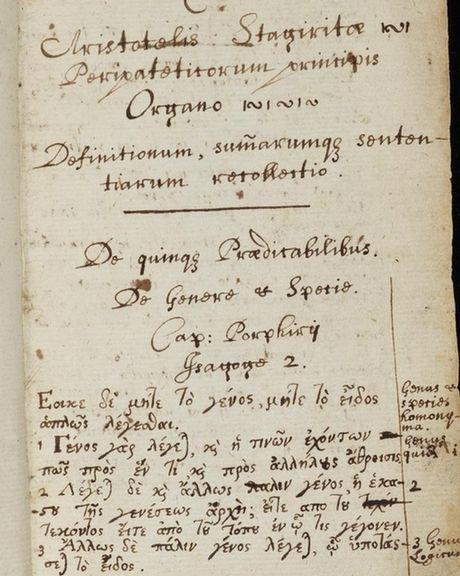 Aristotelis Stagiritæ
Peripateticorum principis
Organo
Definitionum, sum̄arumqꝫ senten-
tiarum recollectio.
De quinqꝫ Prædicabilibus.
De Genere et Specie.
Cap: Porphirij
Isagoge 2.
Εοικε δὲ μήτε τὸ γένος, μήτε τὸ εἶδος
ἁπλῶς λέγεσθαι.
1 Γένος γὰρ λέγε), κỳ ἡ τινῶν ἐχόντων
πως προς ἕν τι κỳ προς ἀλλήλους ἄθροισις
2 Λέγε) δὲ κỳ ἄλλως παλιν γένος ἡ ἑκα-
στου τῆς γενέσεως ἀρχὴ; εἴτε απο του
τεκόντος εἴτε ἀπὸ του τόπου ἐν ᾧ τις γέγονεν.
3 Ἄλλως δὲ πάλιν γένος λέγε), ᾧ ὑποτάσ-
σε) τὸ εἶδος.
Genus &
species
homony-
ma.
Genus
quid
2
3 Genu
Logicum